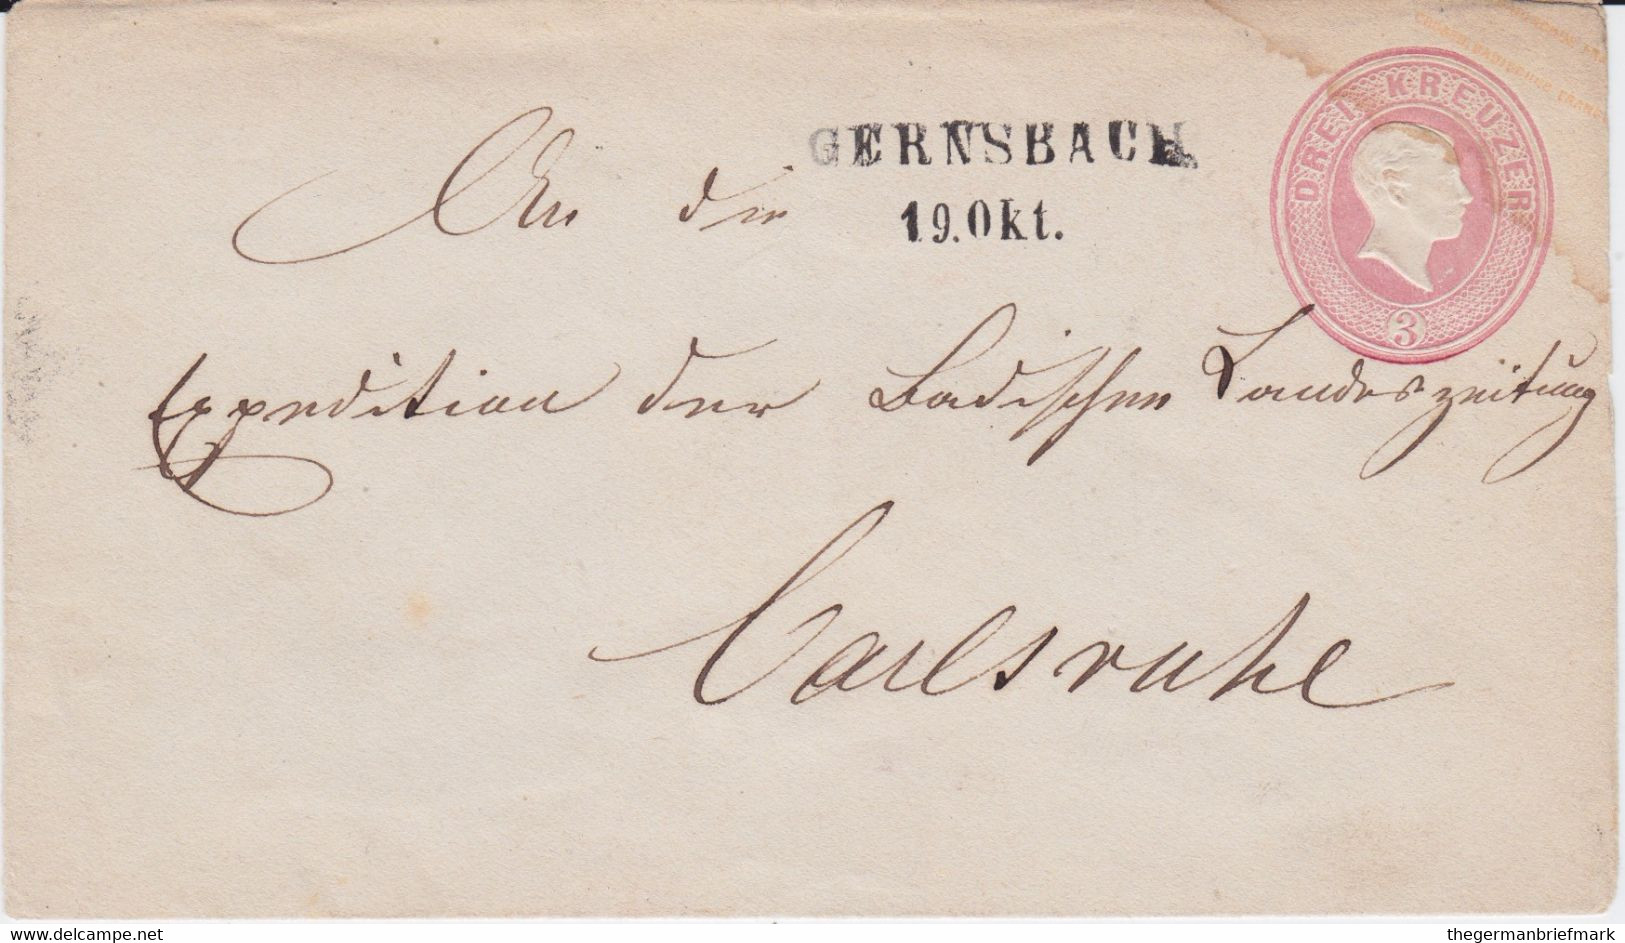 GERNSBACH
19. Okt.
DREI KREUZER
3
An die
Expedition der Badischen Landeszeitung
Carlsruhe
www.delcampe.net
thegermanbriefmark